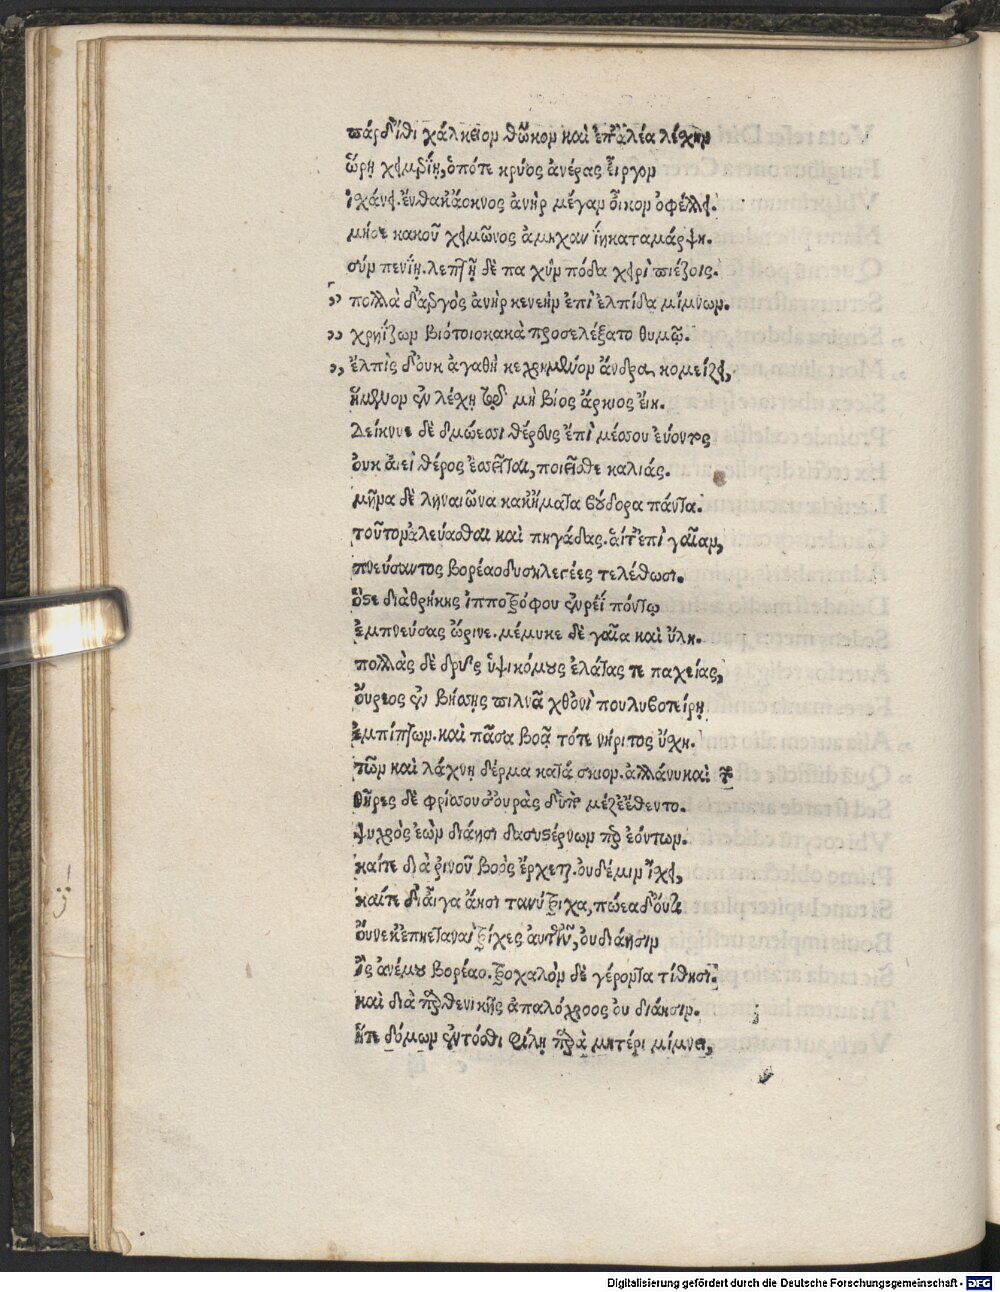 πάρδ' ἴθι χάλκειον θῶκον καὶ ἐπ' ἀλέα λέσχην
ὥρη χειμερίη, ὁπότε κρύος ἀνέρας εἶργον
ἰχάνει. ἔνθα κ' ἄοκνος ἀνὴρ μέγαν οἶκον ὀφέλλει.
μήσε κακοῦ χειμῶνος ἀμηχανίη καταμάρψη.
σύν πενίη. λεπτῇ δὲ παχὺν πόδα χειρὶ πιέζοις.
,, πολλὰ δ' ἀεργὸς ἀνὴρ κενεὴν ἐπὶ ἐλπίδα μίμνων.
,, χρηΐζων βιότοιο κακὰ προσελέξατο θυμῷ.
,, ἐλπὶς δ' οὐκ ἀγαθὴ κεχρημένον ἄνδρα κομείζει,
ἥμενον ἐν λέσχη τῷ μὴ βίος ἄρκιος εἴη.
Δείκνυε δὲ δμώεσσι θέρους ἔτι μέσσου ἐόντος
οὐκ αἰεὶ θέρος ἐσσεῖται, ποιεῖσθε καλιάς.
μῆνα δὲ ληναιῶνα κακήματα βούδορα πάντα.
τοῦτον ἀλεύασθαι καὶ πηγάδας. αἵτ' ἐπὶ γαῖαν,
πνεύσαντος βορέαο δυσηλεγέες τελέθωσι.
ὅστε διὰ θρήκης ἱπποτρόφου εὐρέϊ πόντῳ
ἐμπνεύσας ὥρινε. μέμυκε δὲ γαῖα καὶ ὕλη.
πολλὰς δὲ δρῦς ὑψικόμους ἐλάτας τε παχείας,
οὔρεος ἐν βήσσης πιλνᾶ χθονὶ πουλυβοτείρη
ἐμπίπτων. καὶ πᾶσα βοᾶ τότε νήριτος ὕλη.
θῆρες δὲ φρίσσουσ' οὐρὰς δ' ὑπὸ μέζε' ἔθεντο.
τῶν καὶ λάχνη δέρμα κατάσκιον. ἀλλά νυ καὶ τῶν
ψυχρὸς ἐὼν διάησι δασυστέρνων περ ἐόντων.
καίτε διὰ ῥινοῦ βοὸς ἔρχεται. οὐδέ μιν ἴσχει,
καίτε δι' αἶγα ἄησι τανύτριχα, πώεα δ' οὔτι
οὕνεκ' ἐπηεταναὶ τρίχες αὐτῶν, οὐ διάησιν
ἲς ἀνέμου βορέαο. τροχαλὸν δὲ γέροντα τίθησι.
καὶ διὰ παρθενικῆς ἁπαλόχροος οὐ διάησιν.
ἥτε δόμων ἔντοσθι φίλη παρὰ μητέρι μίμνει,
Digitalisierung gefördert durch die Deutsche Forschungsgemeinschaft - DFG